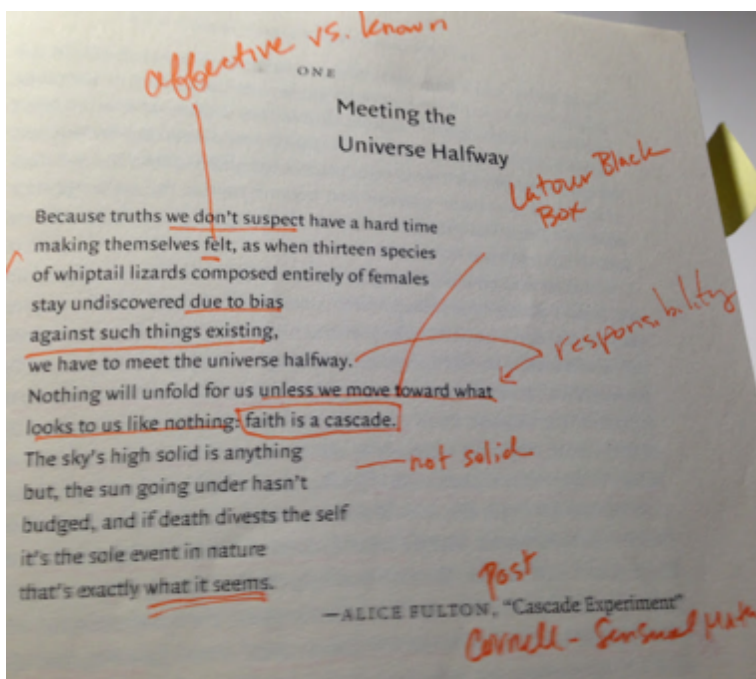 affective vs. known
ONE
Meeting the
Universe Halfway
Latour Black
Box
Because truths we don't suspect have a hard time
making themselves felt, as when thirteen species
of whiptail lizards composed entirely of females
stay undiscovered due to bias
against such things existing,
we have to meet the universe halfway.
responsibility
Nothing will unfold for us unless we move toward what
looks to us like nothing: faith is a cascade.
The sky's high solid is anything
not solid
but, the sun going under hasn't
budged, and if death divests the self
it's the sole event in nature
that's exactly what it seems.
Post
—ALICE FULTON, "Cascade Experiment"
Cornell - Sensual